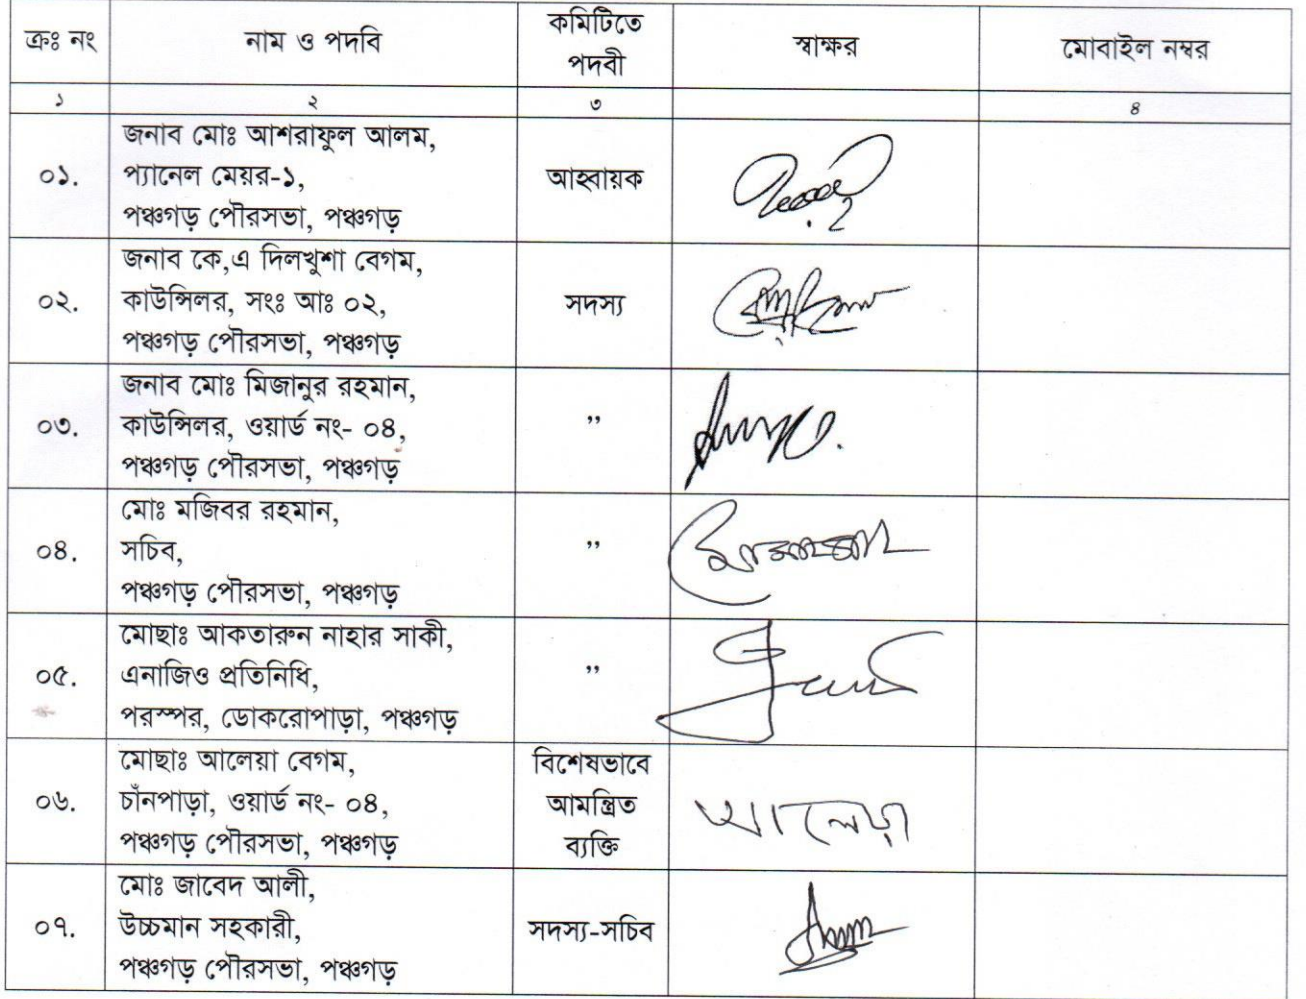 ক্রঃ নং নাম ও পদবি কমিটিতে পদবী স্বাক্ষর মোবাইল নম্বর
১ ২ ৩ ৪
০১. জনাব মোঃ আশরাফুল আলম,
প্যানেল মেয়র-১,
পঞ্চগড় পৌরসভা, পঞ্চগড়
আহ্বায়ক
০২. জনাব কে,এ দিলখুশা বেগম,
কাউন্সিলর, সংঃ আঃ ০২,
পঞ্চগড় পৌরসভা, পঞ্চগড়
সদস্য
০৩. জনাব মোঃ মিজানুর রহমান,
কাউন্সিলর, ওয়ার্ড নং- ০৪,
পঞ্চগড় পৌরসভা, পঞ্চগড়
”
০৪. মোঃ মজিবর রহমান,
সচিব,
পঞ্চগড় পৌরসভা, পঞ্চগড়
”
০৫. মোছাঃ আকতারুন নাহার সাকী,
এনাজিও প্রতিনিধি,
পরস্পর, ডোকরোপাড়া, পঞ্চগড়
”
০৬. মোছাঃ আলেয়া বেগম,
চাঁনপাড়া, ওয়ার্ড নং- ০৪,
পঞ্চগড় পৌরসভা, পঞ্চগড়
বিশেষভাবে
আমন্ত্রিত
ব্যক্তি
আলেয়া
০৭. মোঃ জাবেদ আলী,
উচ্চমান সহকারী,
পঞ্চগড় পৌরসভা, পঞ্চগড়
সদস্য-সচিব